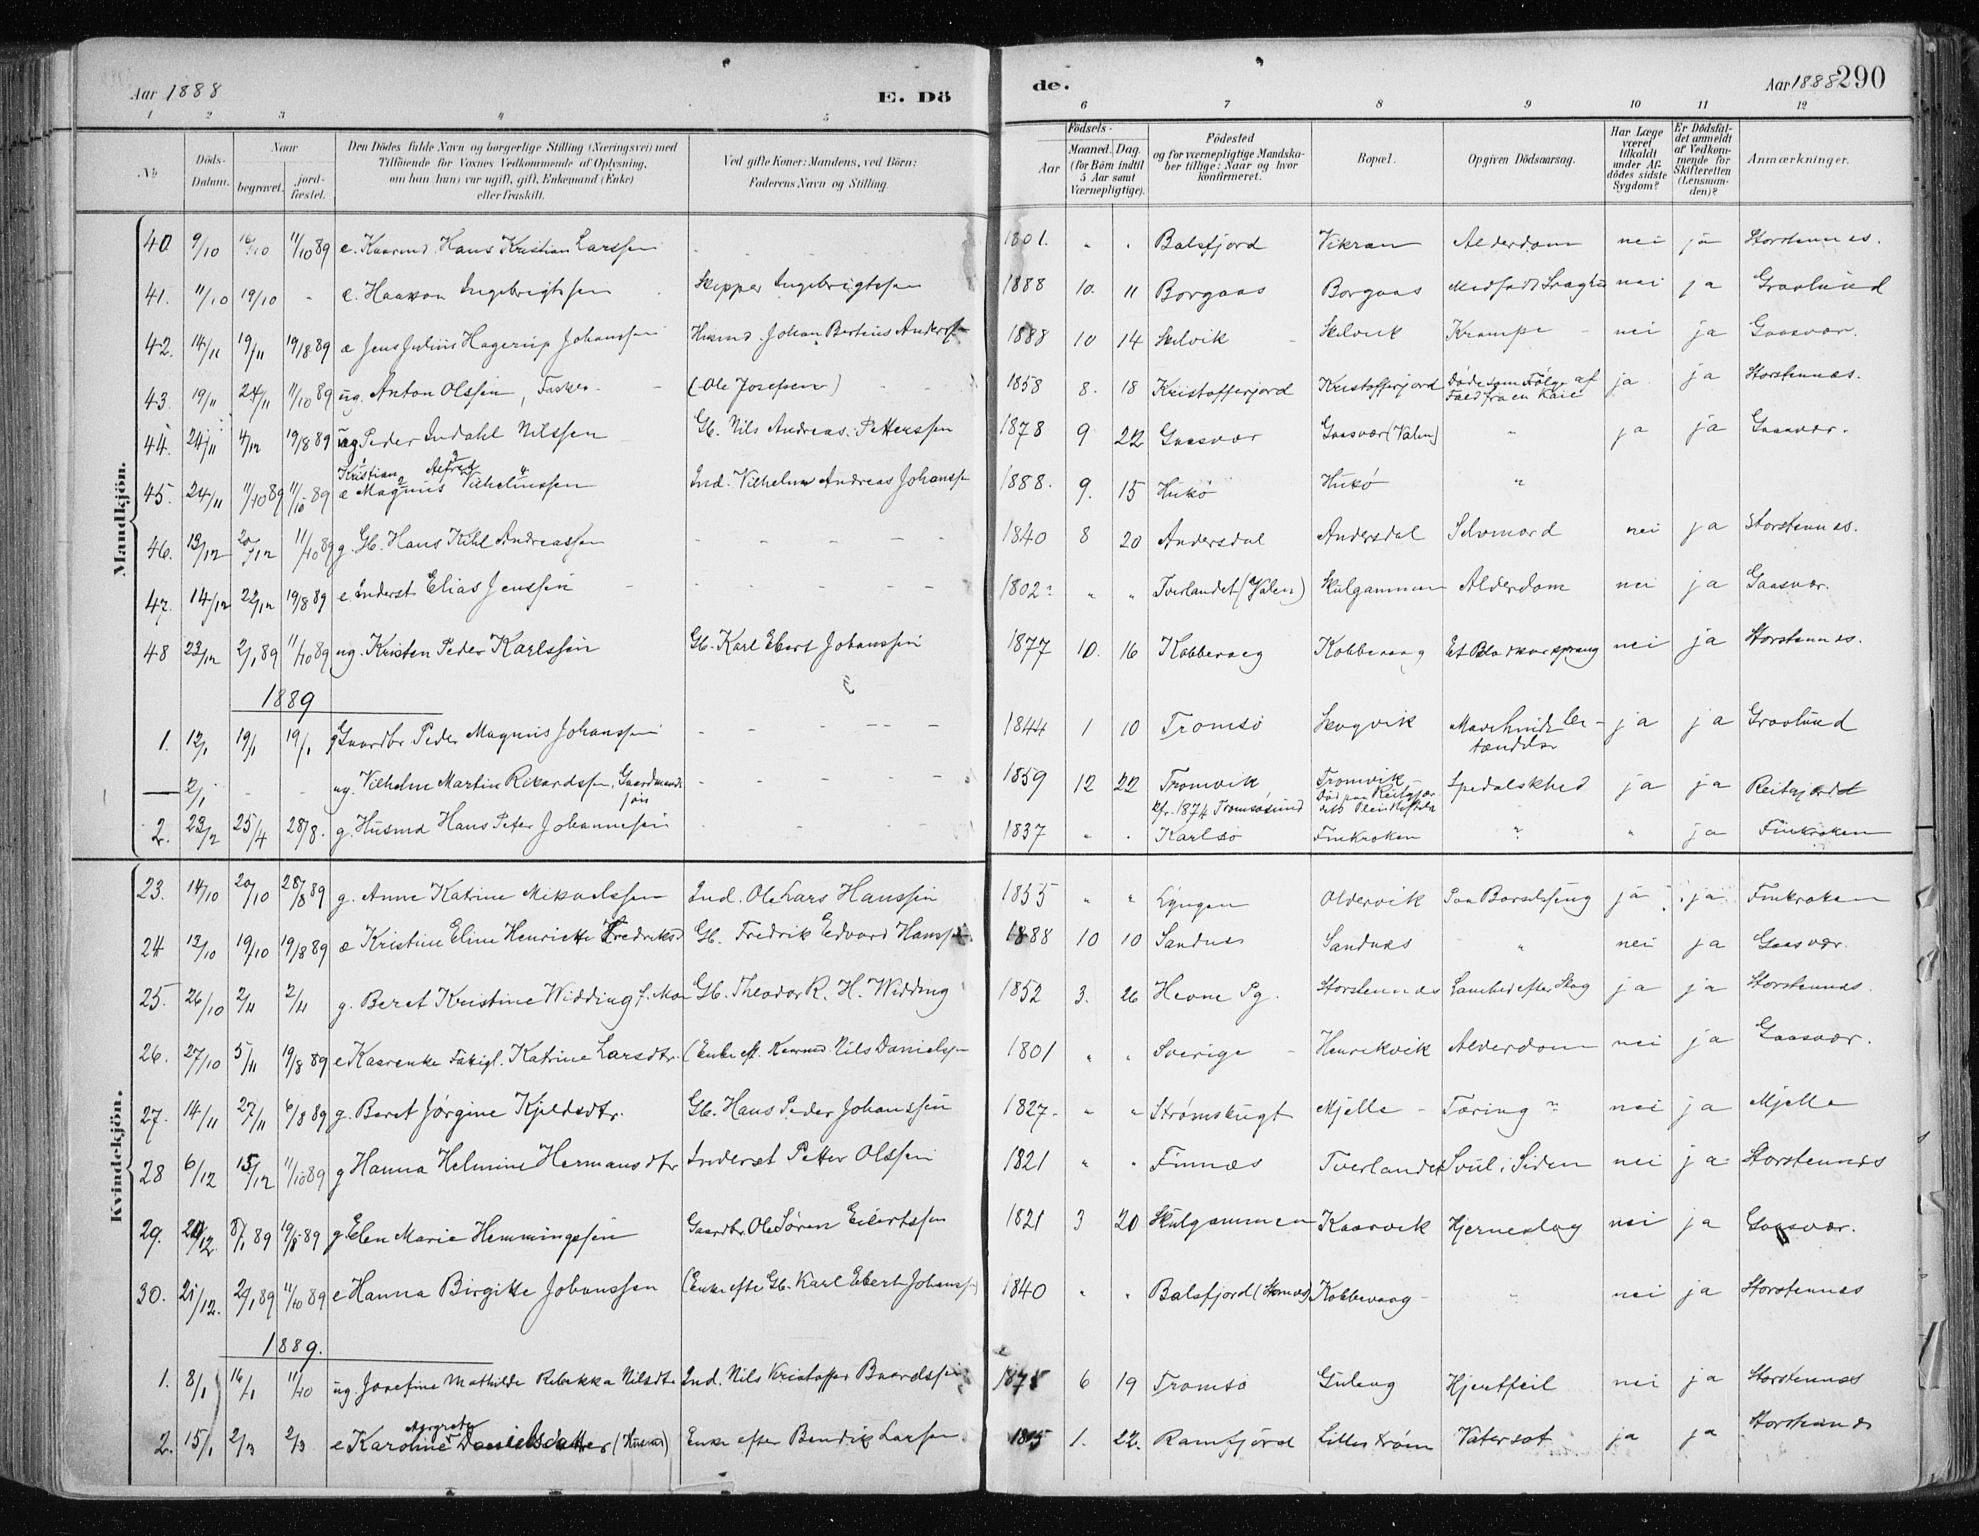 Aar 1888 E. Dö
de. Aar 1888 290
1 2 3 4 5
6 7 8 9 10 11 12
№ Døds-Datum. Naar begravet. jordfæstet. Den Dödes fulde Navn og borgerlige Stilling (Næringsvei) med Tilföiende for Voxnes Vedkommende af Oplysning, om han (hun) var ugift, gift, Enkemand (Enke) eller fraskilt. Ved gifte Koner: Mandens, ved Börn: Faderens Navn og Stilling.
Födsels- Aar Maaned. Dag. (for Börn indtil 5 Aar samt Værnepligtige). Födested og for værnepligtige Mandskaber tillige: Naar og hvor konfirmeret. Bopæl. Opgiven Dödsaarsag. Har Læge været tilkaldt under Afdödes sidste Sygdom? Er Dödsfaldet anmeldt af Vedkommende for Skifteretten (Lensmanden)? Anmærkninger.
Mandkjön.
40. 9/10 16/10 11/10 89 e. Kaarmd. Hans Kristian Larssen 1801. " " Balsfjord Vikran Alderdom nei ja Storstennes.
41. 11/10 19/10 - e. Haakon Ingebrigtsen Skipper Ingebrigtsen 1888 10. 11 Borgaas Borgaas Medfødt nei ja Graalund
42. 14/11 19/11 19/8 89 æ Jens Julius Hagerup Johanssen Husmd. Johan Bertius Anderss 1888 10 14 Skelvik Skelvik Krampe nei ja Gaasvær.
43. 19/11 24/11 11/10 89 ug. Anton Olssen, Fisker (Ole Josefsen) 1858 8. 18 Kristofferjord Kristofferjord Døde som Følge af Fald fra en Kaie ja ja Storstennæs.
44. 24/11 4/12 19/8 89 ug Peder Indahl Nilssen Gb. Nils Andreas Petterssen 1878 9 22 Gaasvær Gaasvær (Valen) " ja ja Gaasvær.
45. 24/11 11/10 89 11/10 89 e Kristian Magnus Alfred Vilhelmssen Ind. Vilhelm Andreas Johanss 1888. 9. 15 Hukø Hukø "
46. 13/12 20/12 11/10 89 g. Gb. Hans Kihl Andreassen 1840 8 20 Andersdal Andersdal Selvmord nei ja Storstennes.
47. 14/12 22/12 19/8 89 e Inderst Elias Jenssen 1802 " " Tverlandet (Valen) Skulgammen Alderdom nei ja Gaasvær.
48 23/12 2/1 89 11/10 89 ug. Kristen Peder Karlssen Gb. Karl Ebert Johanssen 1877 10. 16 Kobbevaag Kobbevaag Et Blodkar sprang nei ja Storstennes.
1889
1. 12/1 19/1 19/1 g Gaardbr Peder Magnus Johanssen 1844 1 10 Tromsø Skogvik ja ja Graalund
— 2/1 - - ug. Vilhelm Martin Rikardssen, Gaardmands søn 1859 12 22 Tromvik kfr. 1874 Tromsøsund Tromvik Spedalskhed ja ja Reitgjerdet
2. 23/2 25/4 28/8. g. Husmd Hans Peter Johannessen 1837 " . Karlsø Finkroken " " ja Finkroken
Kvindekjön.
23. 14/10 20/10 28/8 89 g. Anne Katrine Mikaelssen Ind. Ole Lars Hanssen 1855 " " Lyngen Oldervik Paa Barselseng ja ja Finkroken
24 13/10 19/10 19/8 89 æ Kristine Eline Henriette Fredriksd Gb. Fredrik Edvard Hanss 1888 10 10 Sandnes Sandnæs " nei ja Gaasvær.
25. 26/10 2/11 2/11 g. Beret Kristine Widding f. Moe Gb. Theodor R. H. Widding 1852 3. 26 Hevne Pg. Storstennes Lamhed efter Slag ja ja Storstennes.
26. 27/10 5/11 19/8 89 e Kaarenke Fattigl. Katrine Larsdtr (Enke eft. Kaarmd. Nils Danielsen 1801 " " Sverige Henrikvik Alderdom nei ja Gaasvær.
27. 14/11 27/11 6/8 89 g. Beret Jørgine Kjeldsdtr. Gb. Hans Peder Johanssen 1827. " " Strømskugt Mjelle Tæring nei ja Mjelle
28 6/12 15/12 11/10 89 g Hanna Helmine Hermansdtr Inderst Petter Olssen 1821 " " Finnæs Tverlandet Svul i Siden nei ja Storstennes
29. 20/12. 8/1 89 19/8 89 g. Elen Marie Hemmingssen Gaardbr. Ole Søren Eilertssen 1821 3 20 Skulgammen Kaarvik Hjerneslag nei ja Gaasvær.
30. 21/12. 2/1 89 11/10 89 e Hanna Birgitte Johanssen (Enke efter Gb. Karl Ebert Johanss) 1840 " " Balsfjord (Stornes) Kobbevaag " nei ja Storstennes
1889.
1. 8/1 16/1 11/10 ug Josefine Mathilde Rebekka Nilsdtr Ind. Nils Kristoffer Baardssen 1875 6 19 Tromsø Guleng Hjertfeil nei ja Storstennes
2. 15/1 2/3 2/3 e Karoline Margrethe Danielsdatter (Husmd) Enke efter Bendix Larsen 1815 1. 22. Ramfjord Lillestrøm Vatersot ja ja Storstennes